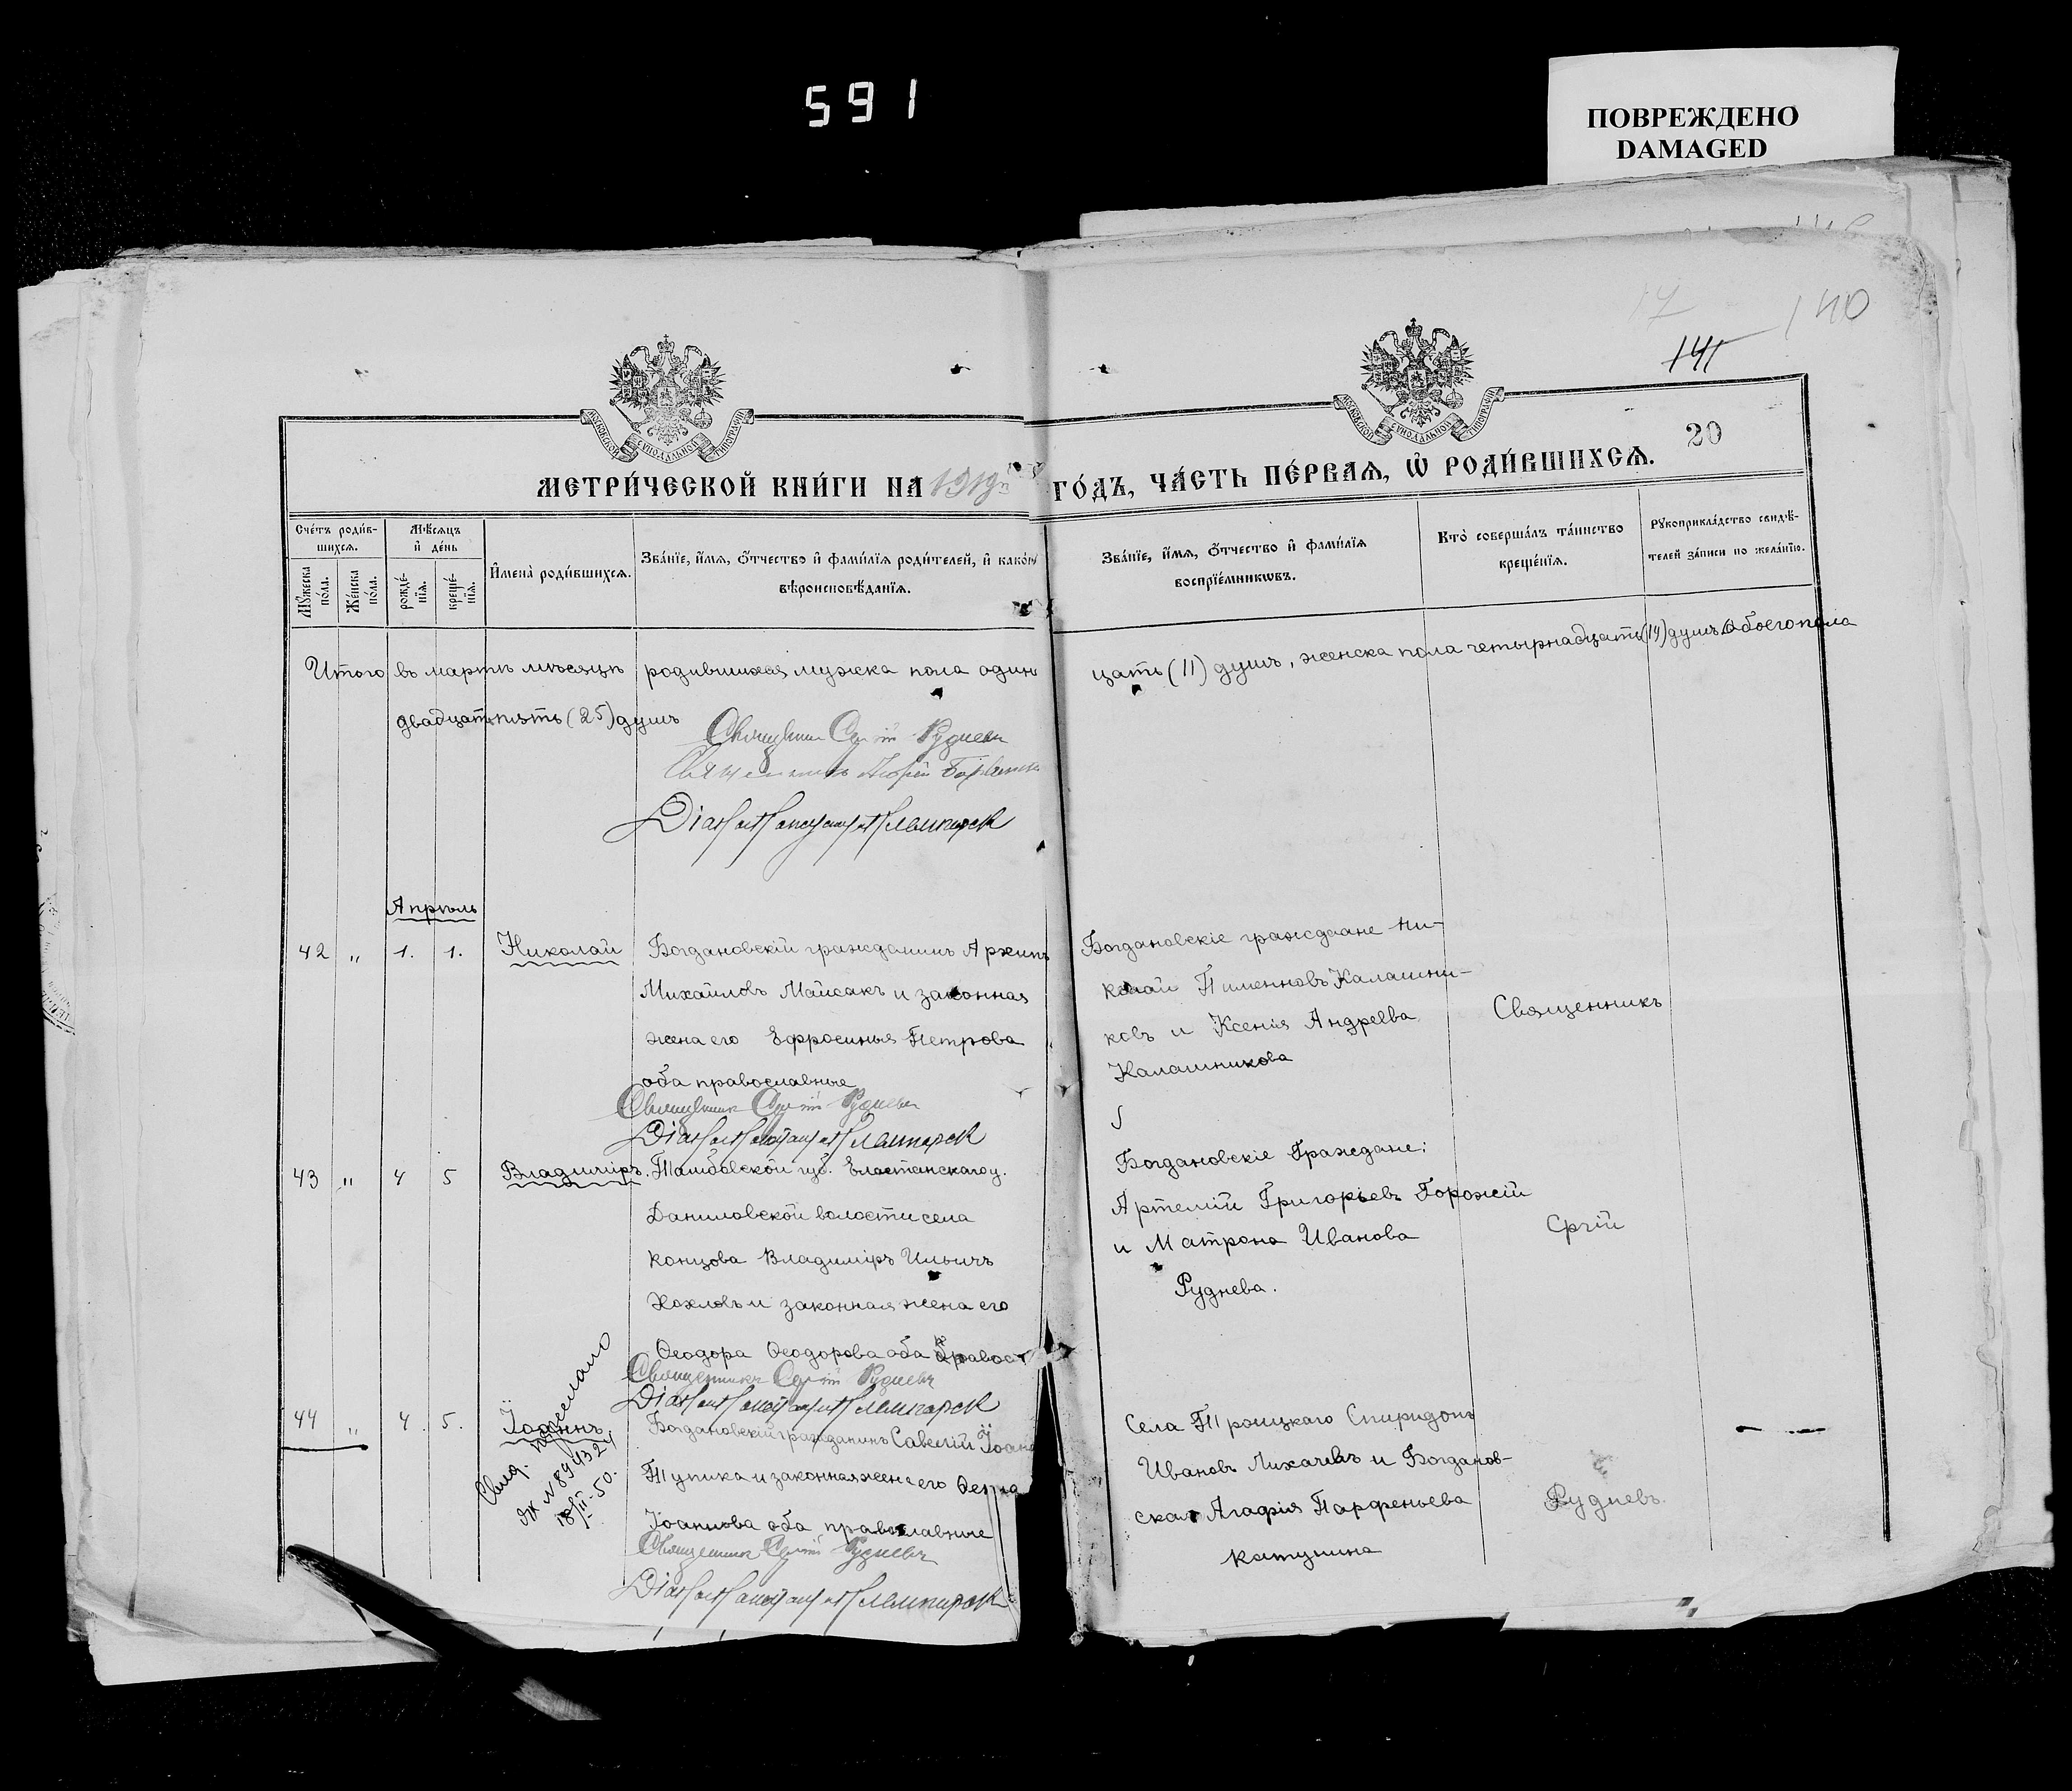 591
ПОВРЕЖДЕНО
DAMAGED
17
140
141
20
МОСКОВСКОЙ СѴНОДАЛЬНОЙ ТИПОГРАФІИ
МОСКОВСКОЙ СѴНОДАЛЬНОЙ ТИПОГРАФІИ
МЕТРИ́ЧЕСКОЙ КНИ́ГИ НА 1919й ГО́ДЪ, ЧА́СТЬ ПЕ́РВАѦ, Ѡ҆ РОДИ́ВШИХСѦ.
Сче́тъ роди́в-
шихсѧ.
Мѣ́сѧцъ
и҆ де́нь
Мꙋ́жеска
по́ла.
Же́нска
по́ла.
рожде́-
нїѧ.
креще́-
нїѧ.
И҆мена̀ роди́вшихсѧ.
Зва́нїе, и҆́мѧ, ѻ҆́тчество и҆ фами́лїѧ роди́телей, и҆ како́гѡ
вѣроисповѣ́данїѧ.
Зва́нїе, и҆́мѧ, ѻ҆́тчество и҆ фами́лїѧ
воспрїе́мникѡвъ.
Кто̀ соверша́лъ та́инство
креще́нїѧ.
Рꙋкоприкла́дство свидѣ́-
телей за́писи по жела́нїю.
Итого въ мартѣ мѣсяцѣ родившихся мужска пола один цать (11) душъ, женска пола четырнадцать (14) душъ. Обоего пола
двадцать пять (25) душъ
Священникъ Сергій Рудневъ
Священникъ
Апрѣль
42 " 1. 1. Николай
Богдановскій гражданинъ Архипъ
Михайловъ Майсакъ и законная
жена его Ефросинья Петрова
оба православные
Священникъ Сергій Рудневъ
Богдановскіе граждане Ни-
колай Пименновъ Калашни-
ковъ и Ксенія Андреева
Калашникова
Священникъ
43 " 4 5 Владиміръ.
Тамбовской губ. Елатанскаго у.
Даниловской волости села
Концова Владиміръ Ильичъ
Хохловъ и законная жена его
Ѳеодора Ѳеодорова оба правос
Священникъ Сергій Рудневъ
Богдановскіе Граждане:
Артемій Григорьевъ Горожій
и Матрона Иванова
Руднева.
Сргій
44 " 4. 5. Іоаннъ
Богдановскій гражданинъ Савелій Іоан
Тупика и законная жена его
Іоаннова оба православные
Священникъ Сергій Рудневъ
Села Троицкаго Спиридонъ
Ивановъ Лихачевъ и Богданов-
ская Агафія Парфеньева
Катунина
Рудневъ.
Свид.
18/II-50.